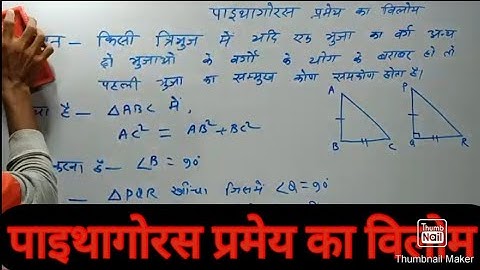 पाइथागोरस प्रमेय का विलोम
किसी त्रिभुज में यदि एक भुजा का वर्ग अन्य
दो भुजाओं के वर्गों के योग के बराबर हो तो
पहली भुजा का सम्मुख कोण समकोण होता है।
है - △ABC में,
AC² = AB² + BC²
A
B
C
P
Q
R
करना है - ∠B = 90°
△PQR खींचा जिसमें ∠Q = 90°
पाइथागोरस प्रमेय का विलोम
Thumb
Nail
Thumbnail Maker